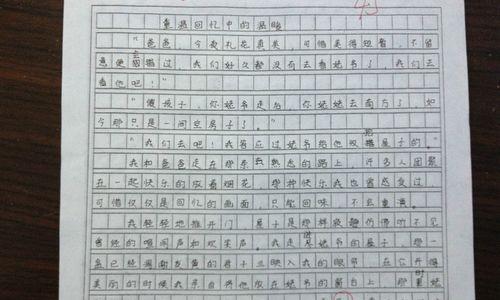 重温回忆中的温暖
"爸爸,今夜礼花真美,可惜美得短暂,不留
意便去溜过,我们好久都没有去看姥爷了,我们去
看他吧!"
"傻孩子,你姥爷走后,你姥姥去南方了,如
今那只是一间空房子了。"
"我们去吧!我答应过姥爷给他收拾屋子的。"
我和爸爸走在那条熟悉的路上,许多人团聚
在一起快乐的放着烟花,那种快乐我也曾感受过,
可惜仅仅是回忆的画面,只能回味,不会重演。
我轻轻地推开门,屋子是那样寂静仿佛听不见
曾经的喧闹声和欢笑声。我走进姥爷的屋子,那一
盆已经凋谢发黄的君子兰映入我的眼帘,在它开得
美丽的时候我亲自将他放在姥爷的窗台上,那时姥姥